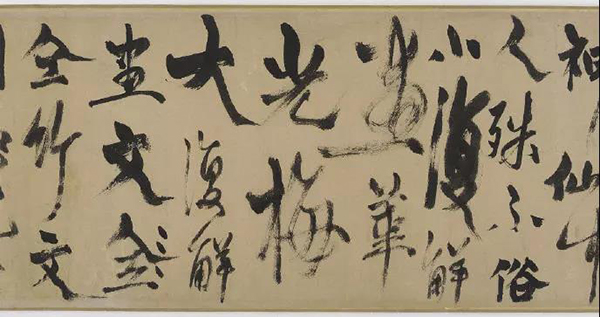 神仙中
人殊不俗
小復解
畫華
光梅
大復解
畫文
全竹文